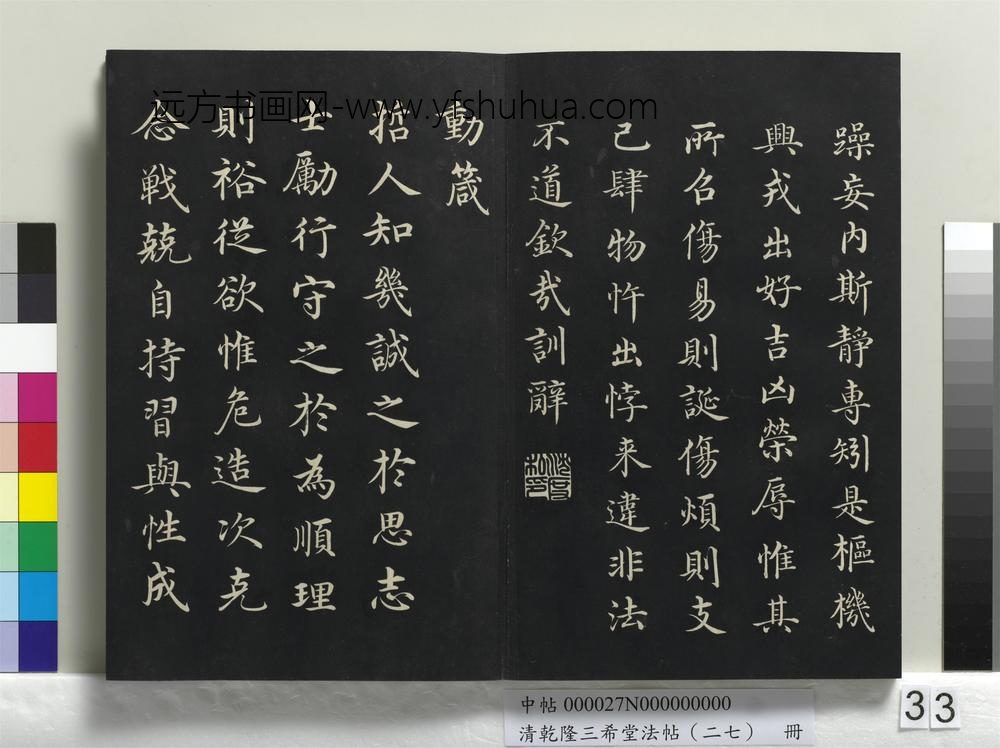 躁妄内斯靜専矧是樞機
興戎出好吉凶榮辱惟其
所召傷易則誕傷煩則支
己肆物忤出悖来違非法
不道欽㢤訓辭
動箴
哲人知幾誠之於思志
士勵行守之於為順理
則裕從欲惟危造次克
念戦兢自持習與性成
远方书画网-www.yfshuhua.com
中帖 000027N000000000
清乾隆三希堂法帖（二七） 冊
33